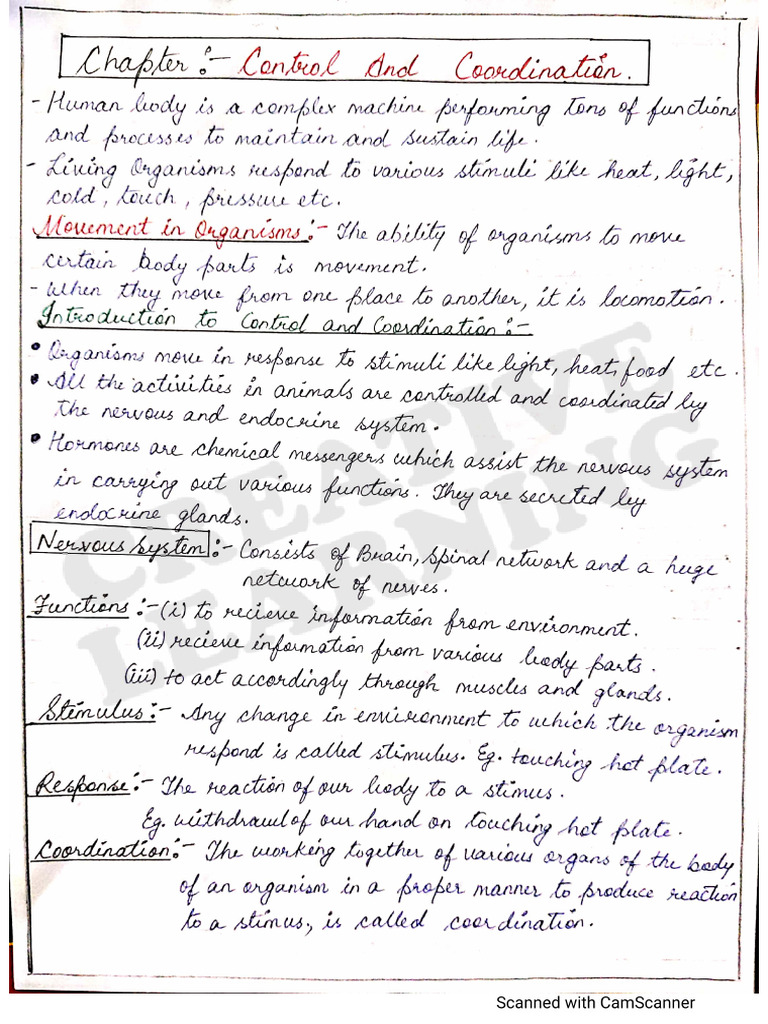 Chapter :- Control And Coordination.
- Human body is a complex machine performing tons of functions
and processes to maintain and sustain life.
- Living Organisms respond to various stimuli like heat, light,
cold, touch, pressure etc.
Movement in Organisms :- The ability of organisms to move
certain body parts is movement.
- When they move from one place to another, it is locomotion.
Introduction to Control and Coordination :-
• Organisms move in response to stimuli like light, heat, food etc.
• All the activities in animals are controlled and coordinated by
the nervous and endocrine system.
• Hormones are chemical messengers which assist the nervous system
in carrying out various functions. They are secreted by
endocrine glands.
Nervous System :- Consists of Brain, Spinal network and a huge
network of nerves.
Functions :- (i) to recieve information from environment.
(ii) recieve information from various body parts.
(iii) to act accordingly through muscles and glands.
Stimulus :- Any change in environment to which the organism
respond is called stimulus. Eg. touching hot plate.
Response :- The reaction of our body to a stimus.
Eg. withdrawl of our hand on touching hot plate.
Coordination :- The working together of various organs of the body
of an organism in a proper manner to produce reaction
to a stimus, is called coordination.
CREATIVE
LEARNING
Scanned with CamScanner